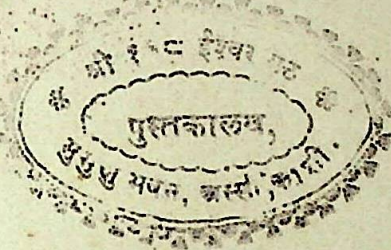 ❉ श्री १०८ ईश्वर मठ ❉
पुस्तकालय,
मुमुक्षु भवन, अस्सी, काशी.